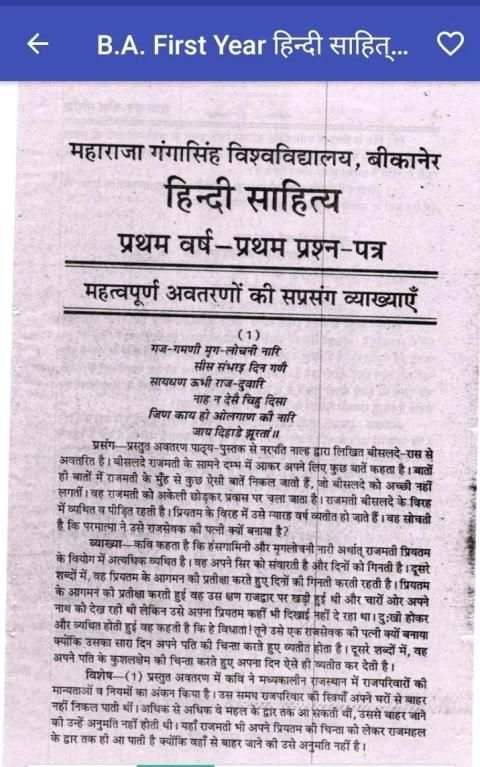 B.A. First Year हिन्दी साहित्...
महाराजा गंगासिंह विश्वविद्यालय, बीकानेर
हिन्दी साहित्य
प्रथम वर्ष–प्रथम प्रश्न-पत्र
महत्वपूर्ण अवतरणों की सप्रसंग व्याख्याएँ
(1)
गज-गमणी मृग-लोचनी नारि
सीस संभारइ दिन गणै
सायधण ऊभी राज-दुवारि
नाह न देसै चिहु दिसा
जिण काय हो ओलगाण की नारि
जाय दिहाडे झूरतां॥
प्रसंग—प्रस्तुत अवतरण पाठ्य-पुस्तक से नरपति नाल्ह द्वारा लिखित बीसलदे-रास से
अवतरित है। बीसलदे राजमती के सामने दम्भ में आकर अपने लिए कुछ बातें कहता है। बातों
ही बातों में राजमती के मुँह से कुछ ऐसी बातें निकल जाती हैं, जो बीसलदे को अच्छी नहीं
लगतीं। वह राजमती को अकेली छोड़कर प्रवास पर चला जाता है। राजमती बीसलदे के विरह
में व्यथित व पीड़ित रहती है। प्रियतम के विरह में उसे ग्यारह वर्ष व्यतीत हो जाते हैं। वह सोचती
है कि परमात्मा ने उसे राजसेवक की पत्नी क्यों बनाया है?
व्याख्या—कवि कहता है कि हंसगामिनी और मृगलोचनी नारी अर्थात् राजमती प्रियतम
के वियोग में अत्यधिक व्यथित है। वह अपने सिर को संवारती है और दिनों को गिनती है। दूसरे
शब्दों में, वह प्रियतम के आगमन की प्रतीक्षा करते हुए दिनों की गिनती करती रहती है। प्रियतम
के आगमन की प्रतीक्षा करती हुई वह उस क्षण राजद्वार पर खड़ी हुई थी और चारों ओर अपने
नाथ को देख रही थी लेकिन उसे अपना प्रियतम कहीं भी दिखाई नहीं दे रहा था। दुःखी होकर
और व्यथित होती हुई वह कहती है कि हे विधाता! तूने उसे एक राजसेवक की पत्नी क्यों बनाया
क्योंकि उसका सारा दिन अपने पति की चिन्ता करते हुए व्यतीत होता है। दूसरे शब्दों में, वह
अपने पति के कुशलक्षेम की चिन्ता करते हुए अपना दिन ऐसे ही व्यतीत कर देती है।
विशेष—(1) प्रस्तुत अवतरण में कवि ने मध्यकालीन राजस्थान में राजपरिवारों की
मान्यताओं व नियमों का अंकन किया है। उस समय राजपरिवार की स्त्रियाँ अपने घरों से बाहर
नहीं निकल पाती थीं। अधिक से अधिक वे महल के द्वार तक आ सकती थीं, उससे बाहर जाने
की उन्हें अनुमति नहीं होती थी। यहाँ राजमती भी अपने प्रियतम की चिन्ता को लेकर राजमहल
के द्वार तक ही आ पाती है क्योंकि वहाँ से बाहर जाने की उसे अनुमति नहीं है।